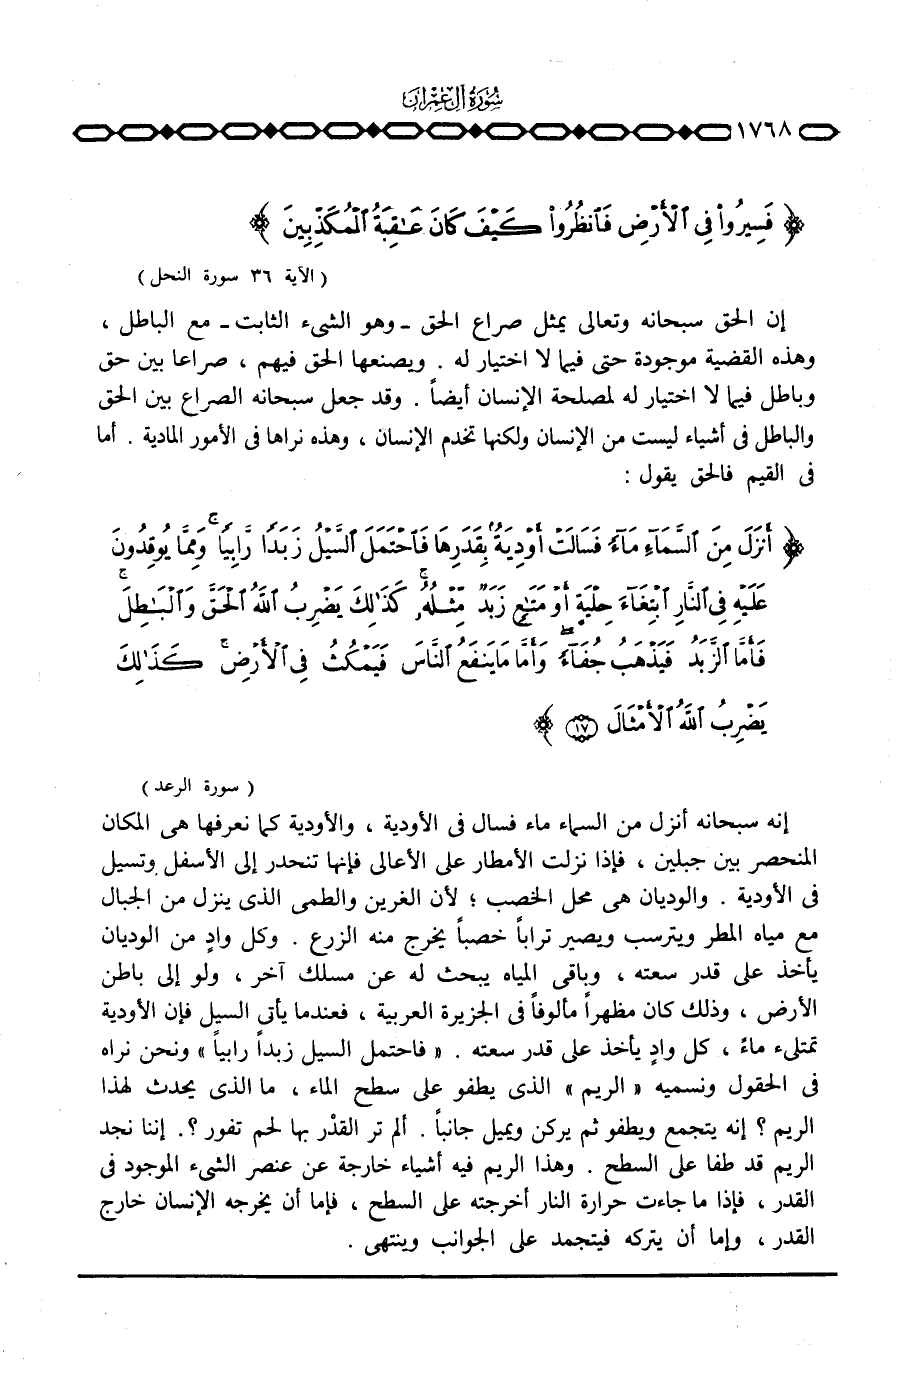 سُورَةُ آلِ عِمْرَانَ
١٧٦٨
﴿ فَسِيرُوا۟ فِى ٱلْأَرْضِ فَٱنظُرُوا۟ كَيْفَ كَانَ عَـٰقِبَةُ ٱلْمُكَذِّبِينَ ﴾
( الآية ٣٦ سورة النحل )
إن الحق سبحانه وتعالى يمثل صراع الحق ـ وهو الشىء الثابت ـ مع الباطل ،
وهذه القضية موجودة حتى فيما لا اختيار له . ويصنعها الحق فيهم ، صراعا بين حق
وباطل فيما لا اختيار له لمصلحة الإنسان أيضاً . وقد جعل سبحانه الصراع بين الحق
والباطل فى أشياء ليست من الإنسان ولكنها تخدم الإنسان ، وهذه نراها فى الأمور المادية . أما
فى القيم فالحق يقول :
﴿ أَنزَلَ مِنَ ٱلسَّمَآءِ مَآءً فَسَالَتْ أَوْدِيَةٌۢ بِقَدَرِهَا فَٱحْتَمَلَ ٱلسَّيْلُ زَبَدًا رَّابِيًا ۚ وَمِمَّا يُوقِدُونَ
عَلَيْهِ فِى ٱلنَّارِ ٱبْتِغَآءَ حِلْيَةٍ أَوْ مَتَـٰعٍ زَبَدٌ مِّثْلُهُۥ ۚ كَذَٰلِكَ يَضْرِبُ ٱللَّهُ ٱلْحَقَّ وَٱلْبَـٰطِلَ ۚ
فَأَمَّا ٱلزَّبَدُ فَيَذْهَبُ جُفَآءً ۖ وَأَمَّا مَا يَنفَعُ ٱلنَّاسَ فَيَمْكُثُ فِى ٱلْأَرْضِ ۚ كَذَٰلِكَ
يَضْرِبُ ٱللَّهُ ٱلْأَمْثَالَ ١٧ ﴾
( سورة الرعد )
إنه سبحانه أنزل من السماء ماء فسال فى الأودية ، والأودية كما نعرفها هى المكان
المنحصر بين جبلين ، فإذا نزلت الأمطار على الأعالى فإنها تنحدر إلى الأسفل وتسيل
فى الأودية . والوديان هى محل الخصب ؛ لأن الغرين والطمى الذى ينزل من الجبال
مع مياه المطر ويترسب ويصير تراباً خصباً يخرج منه الزرع . وكل وادٍ من الوديان
يأخذ على قدر سعته ، وباقى المياه يبحث له عن مسلك آخر ، ولو إلى باطن
الأرض ، وذلك كان مظهراً مألوفاً فى الجزيرة العربية ، فعندما يأتى السيل فإن الأودية
تمتلىء ماءً ، كل وادٍ يأخذ على قدر سعته . « فاحتمل السيل زبداً رابياً » ونحن نراه
فى الحقول ونسميه « الريم » الذى يطفو على سطح الماء ، ما الذى يحدث لهذا
الريم ؟ إنه يتجمع ويطفو ثم يركن ويميل جانباً . ألم تر القدْر بها لحم تفور ؟. إننا نجد
الريم قد طفا على السطح . وهذا الريم فيه أشياء خارجة عن عنصر الشىء الموجود فى
القدر ، فإذا ما جاءت حرارة النار أخرجته على السطح ، فإما أن يخرجه الإنسان خارج
القدر ، وإما أن يتركه فيتجمد على الجوانب وينتهى .